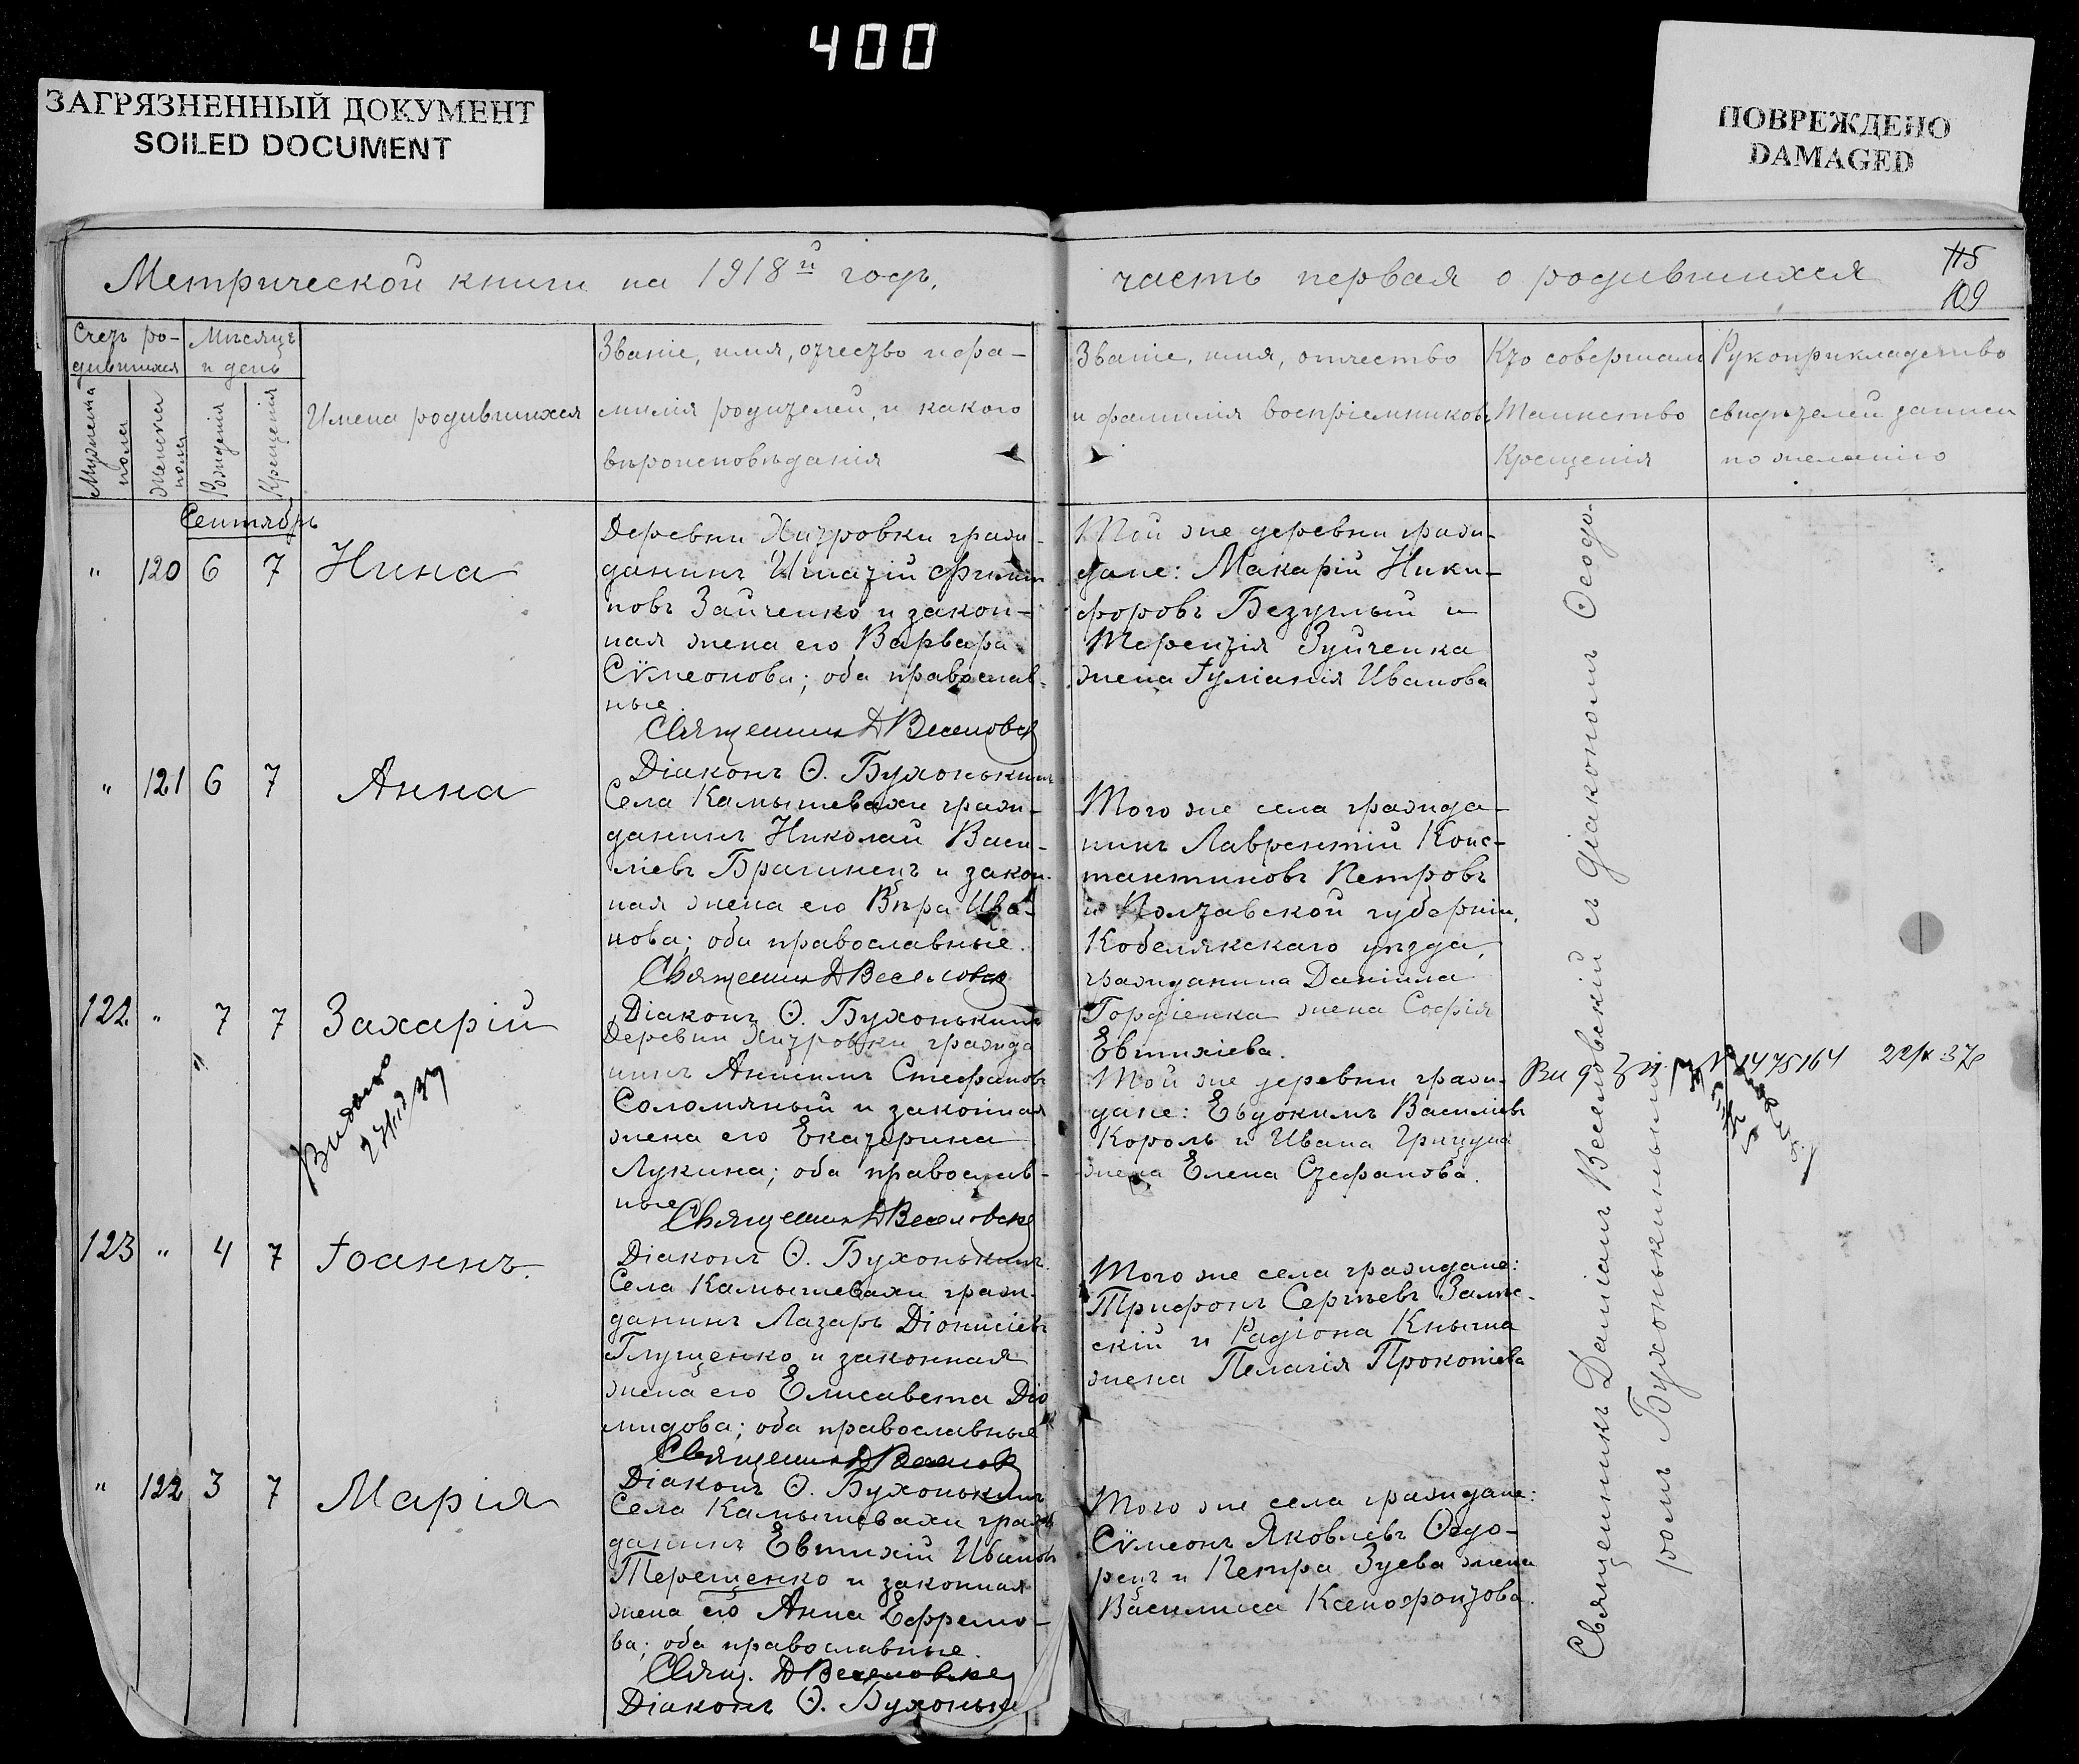 400
ЗАГРЯЗНЕННЫЙ ДОКУМЕНТ
SOILED DOCUMENT
ПОВРЕЖДЕНО
DAMAGED
Метрической книги на 1918й годъ,
часть первая о родившихся
115
109
Счетъ ро-
дившихся
Мѣсяцъ
и день
Мужеска
пола
Женска
пола
Рожденія
Крещенія
Имена родившихся
Званіе, имя, отчество и фа-
милія родителей, и какого
вѣроисповѣданія
Званіе, имя, отчество
и фамилія воспріемниковъ
Кто совершалъ
Таинство
Крещенія
Рукоприкладство
свидѣтелей записи
по желанію
Сентябрь
" 120 6 7 Нина
Деревни Хитровки граж-
данинъ Игнатій Филип
повъ Зайченко и закон-
ная жена его Варвара
Сѵмеонова; оба православ-
ные.
Священник Д Веселовск
Діаконъ Ѳ. Бухонькинъ
Той же деревни граж-
дане: Макарій Ники-
форовъ Безуглый и
Терентія Зуйченка
жена Іуліанія Иванова
" 121 6 7 Анна
Села Камышевахи граж-
данинъ Николай Васи-
ліевъ Брагинецъ и закон-
ная жена его Вѣра Ива-
нова; оба православные.
Священник Д Веселовск
Діаконъ Ѳ. Бухонькинъ
Того же села гражда-
нинъ Лаврентій Конс-
тантиновъ Петровъ
и Полтавской губерніи,
Кобелякскаго уѣзда,
гражданина Даніила
Гордіенка жена Софія
Евтихіева.
122 " 7 7 Захарій
"
Видано
Деревни Хитровки гражда
нинъ Анисимъ Стефановъ
Соломяный и законная
жена его Екатерина
Лукина; оба православ-
ные
Священник Д Веселовск
Діаконъ Ѳ. Бухонькинъ.
Той же деревни граж-
дане: Евдокимъ Василіевъ
Король и Ивана Грицуна
жена Елена Стефанова.
123 " 4 7 Іоаннъ.
Села Камышевахи граж-
данинъ Лазарь Діонисіевъ
Глущенко и законная
жена его Елисавета Діо
мидова; оба православные
Священник Д Веселовск
Діаконъ Ѳ. Бухонькинъ
Того же села граждане:
Трифонъ Сергѣевъ Залѣс-
скій и Радіона Кныша
жена Пелагія Прокопіева
" 122 3 7 Марія
Села Камышевахи граж
данинъ Евтихій Ивановъ
Терещенко и законная
жена его Анна Ефремо-
ва; оба православные.
Свящ. Д Веселовск
Діаконъ Ѳ. Бухоньки
Того же села граждане:
Сѵмеонъ Яковлевъ Ѳедо-
рецъ и Петра Зуева жена
Василиса Ксенофонтова.
Священникъ Даміанъ Веселовскій съ діакономъ Ѳеодо-
ромъ Бухонькинымъ
№ 1475164